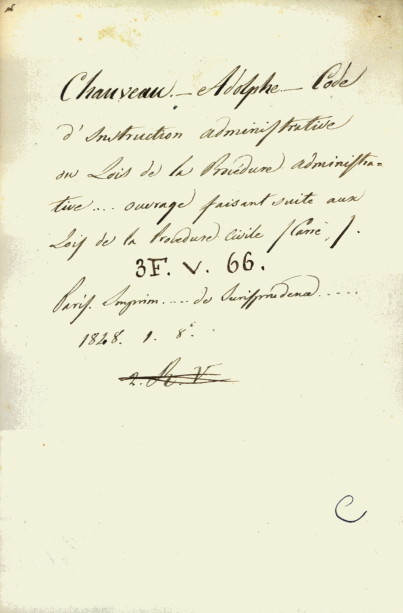 Chauveau. — Adolphe — Code
d'Instruction administrative
ou Lois de la Procédure administra=
tive .... ouvrage faisant suite aux
Lois de la Procédure civile (Carré,).
3F. V. 66.
Paris. Imprim..... de Jurisprudence.....
1848. 1. 8°.
2. R. V
C